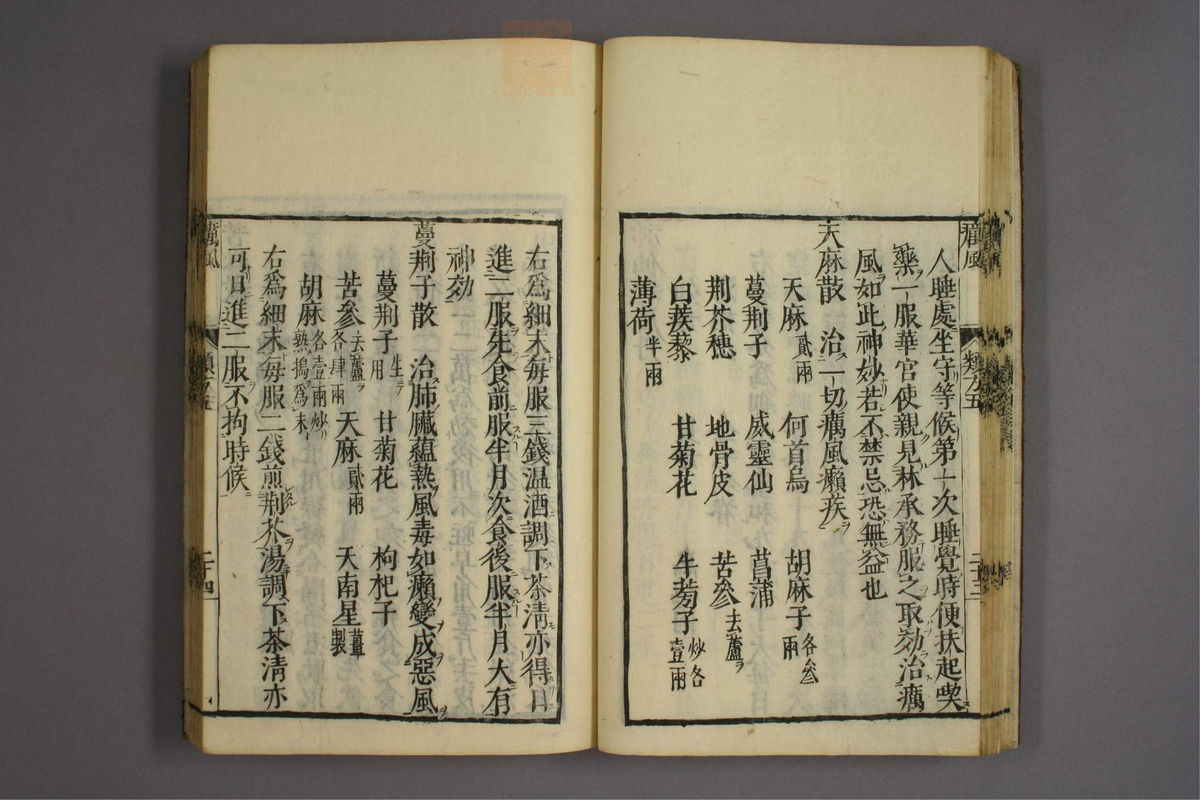 癘風
類方五
二十三
人睡處坐守等候第一次睡覺時便扶起喫
藥一服華官使親見林承務服之取効治癘
風如此神妙若不禁忌恐無益也
天麻散 治一切癘風癩疾
天麻貳兩 何首烏 胡麻子各叁兩
蔓荆子 威靈仙 菖蒲
荆芥穗 地骨皮 苦參去蘆
白蒺藜 甘菊花 牛蒡子炒各壹兩
薄荷半兩
右爲細末每服三錢温酒調下茶清亦得日
進二服先食前服半月次食後服半月大有
神効
蔓荆子散 治肺臟蘊熱風毒如癩變成惡風
蔓荆子生用 甘菊花 枸杞子
苦參去蘆各肆兩 天麻貳兩 天南星薑製
胡麻各壹兩炒熟搗爲末
右爲細末每服二錢煎荆芥湯調下茶清亦
可日進二服不拘時候
癘風
類方五
二十四